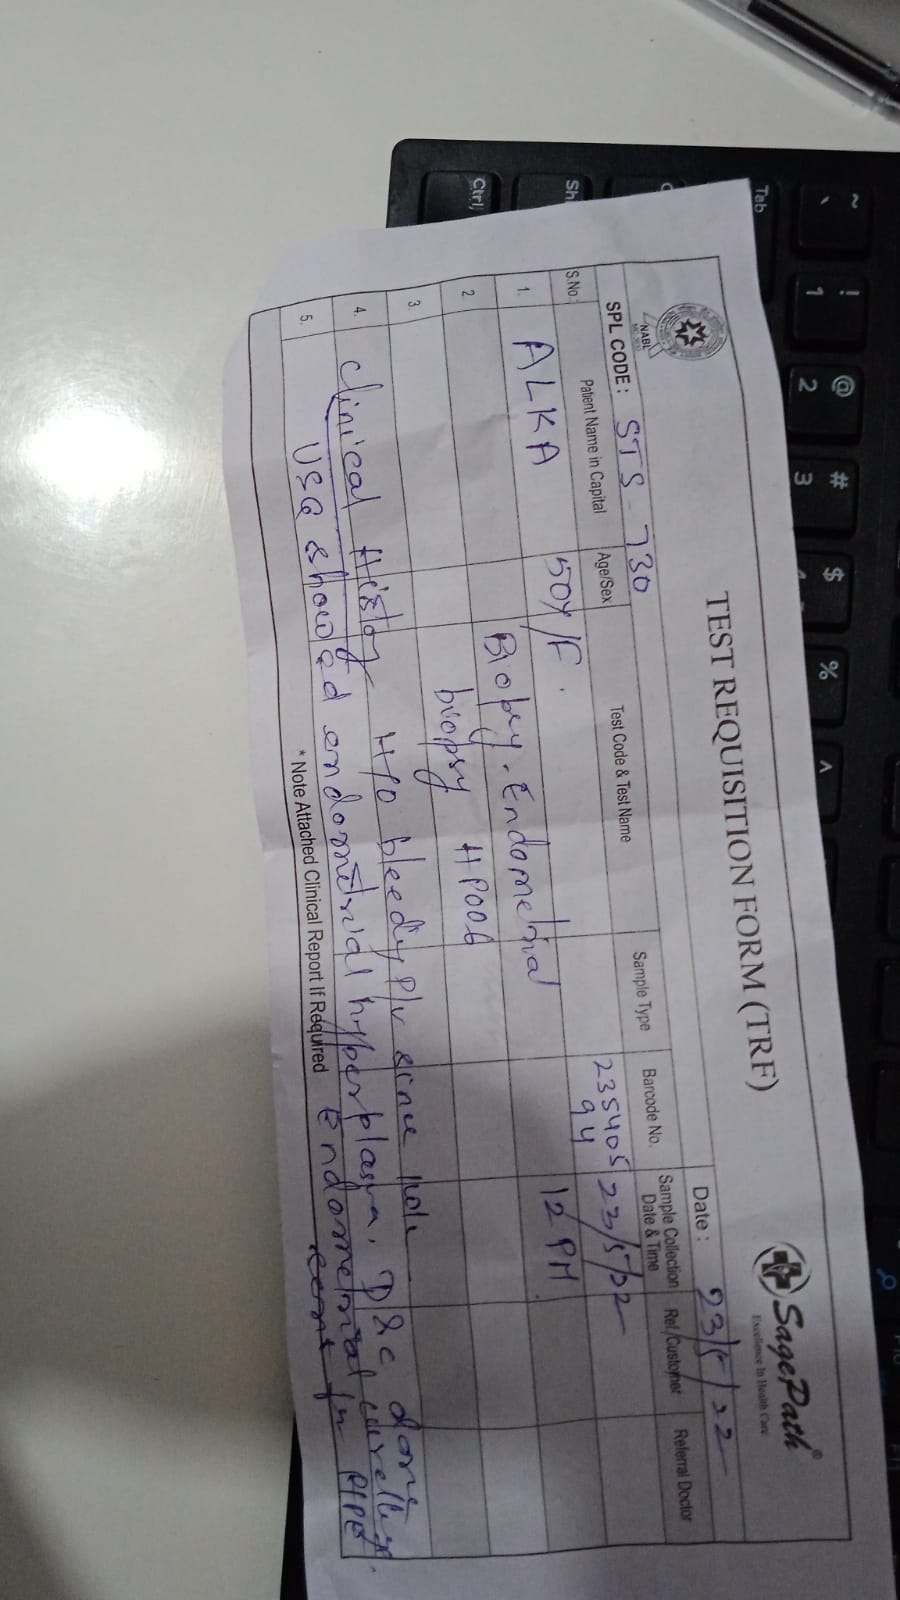 SagePath®
Excellence In Health Care
TEST REQUISITION FORM (TRF)
Date : 23/5/22
NABL
SPL CODE : STS - 730
S.No. Patient Name in Capital Age/Sex Test Code & Test Name Sample Type Barcode No. Sample Collection Date & Time Ref/Customer Referral Doctor
1. ALKA 50Y/F. Biopsy. Endometrial 23540594 23/5/22 12 PM
2. biopsy HP006
3.
4. Clinical History H/O bleeding P/V since
5. USG showed endometrial hyperplasia. D&C done
Endometrial curettings
* Note Attached Clinical Report If Required
Tab
Sh
Ctrl
~ `
! 1
@ 2
# 3
$
%
^